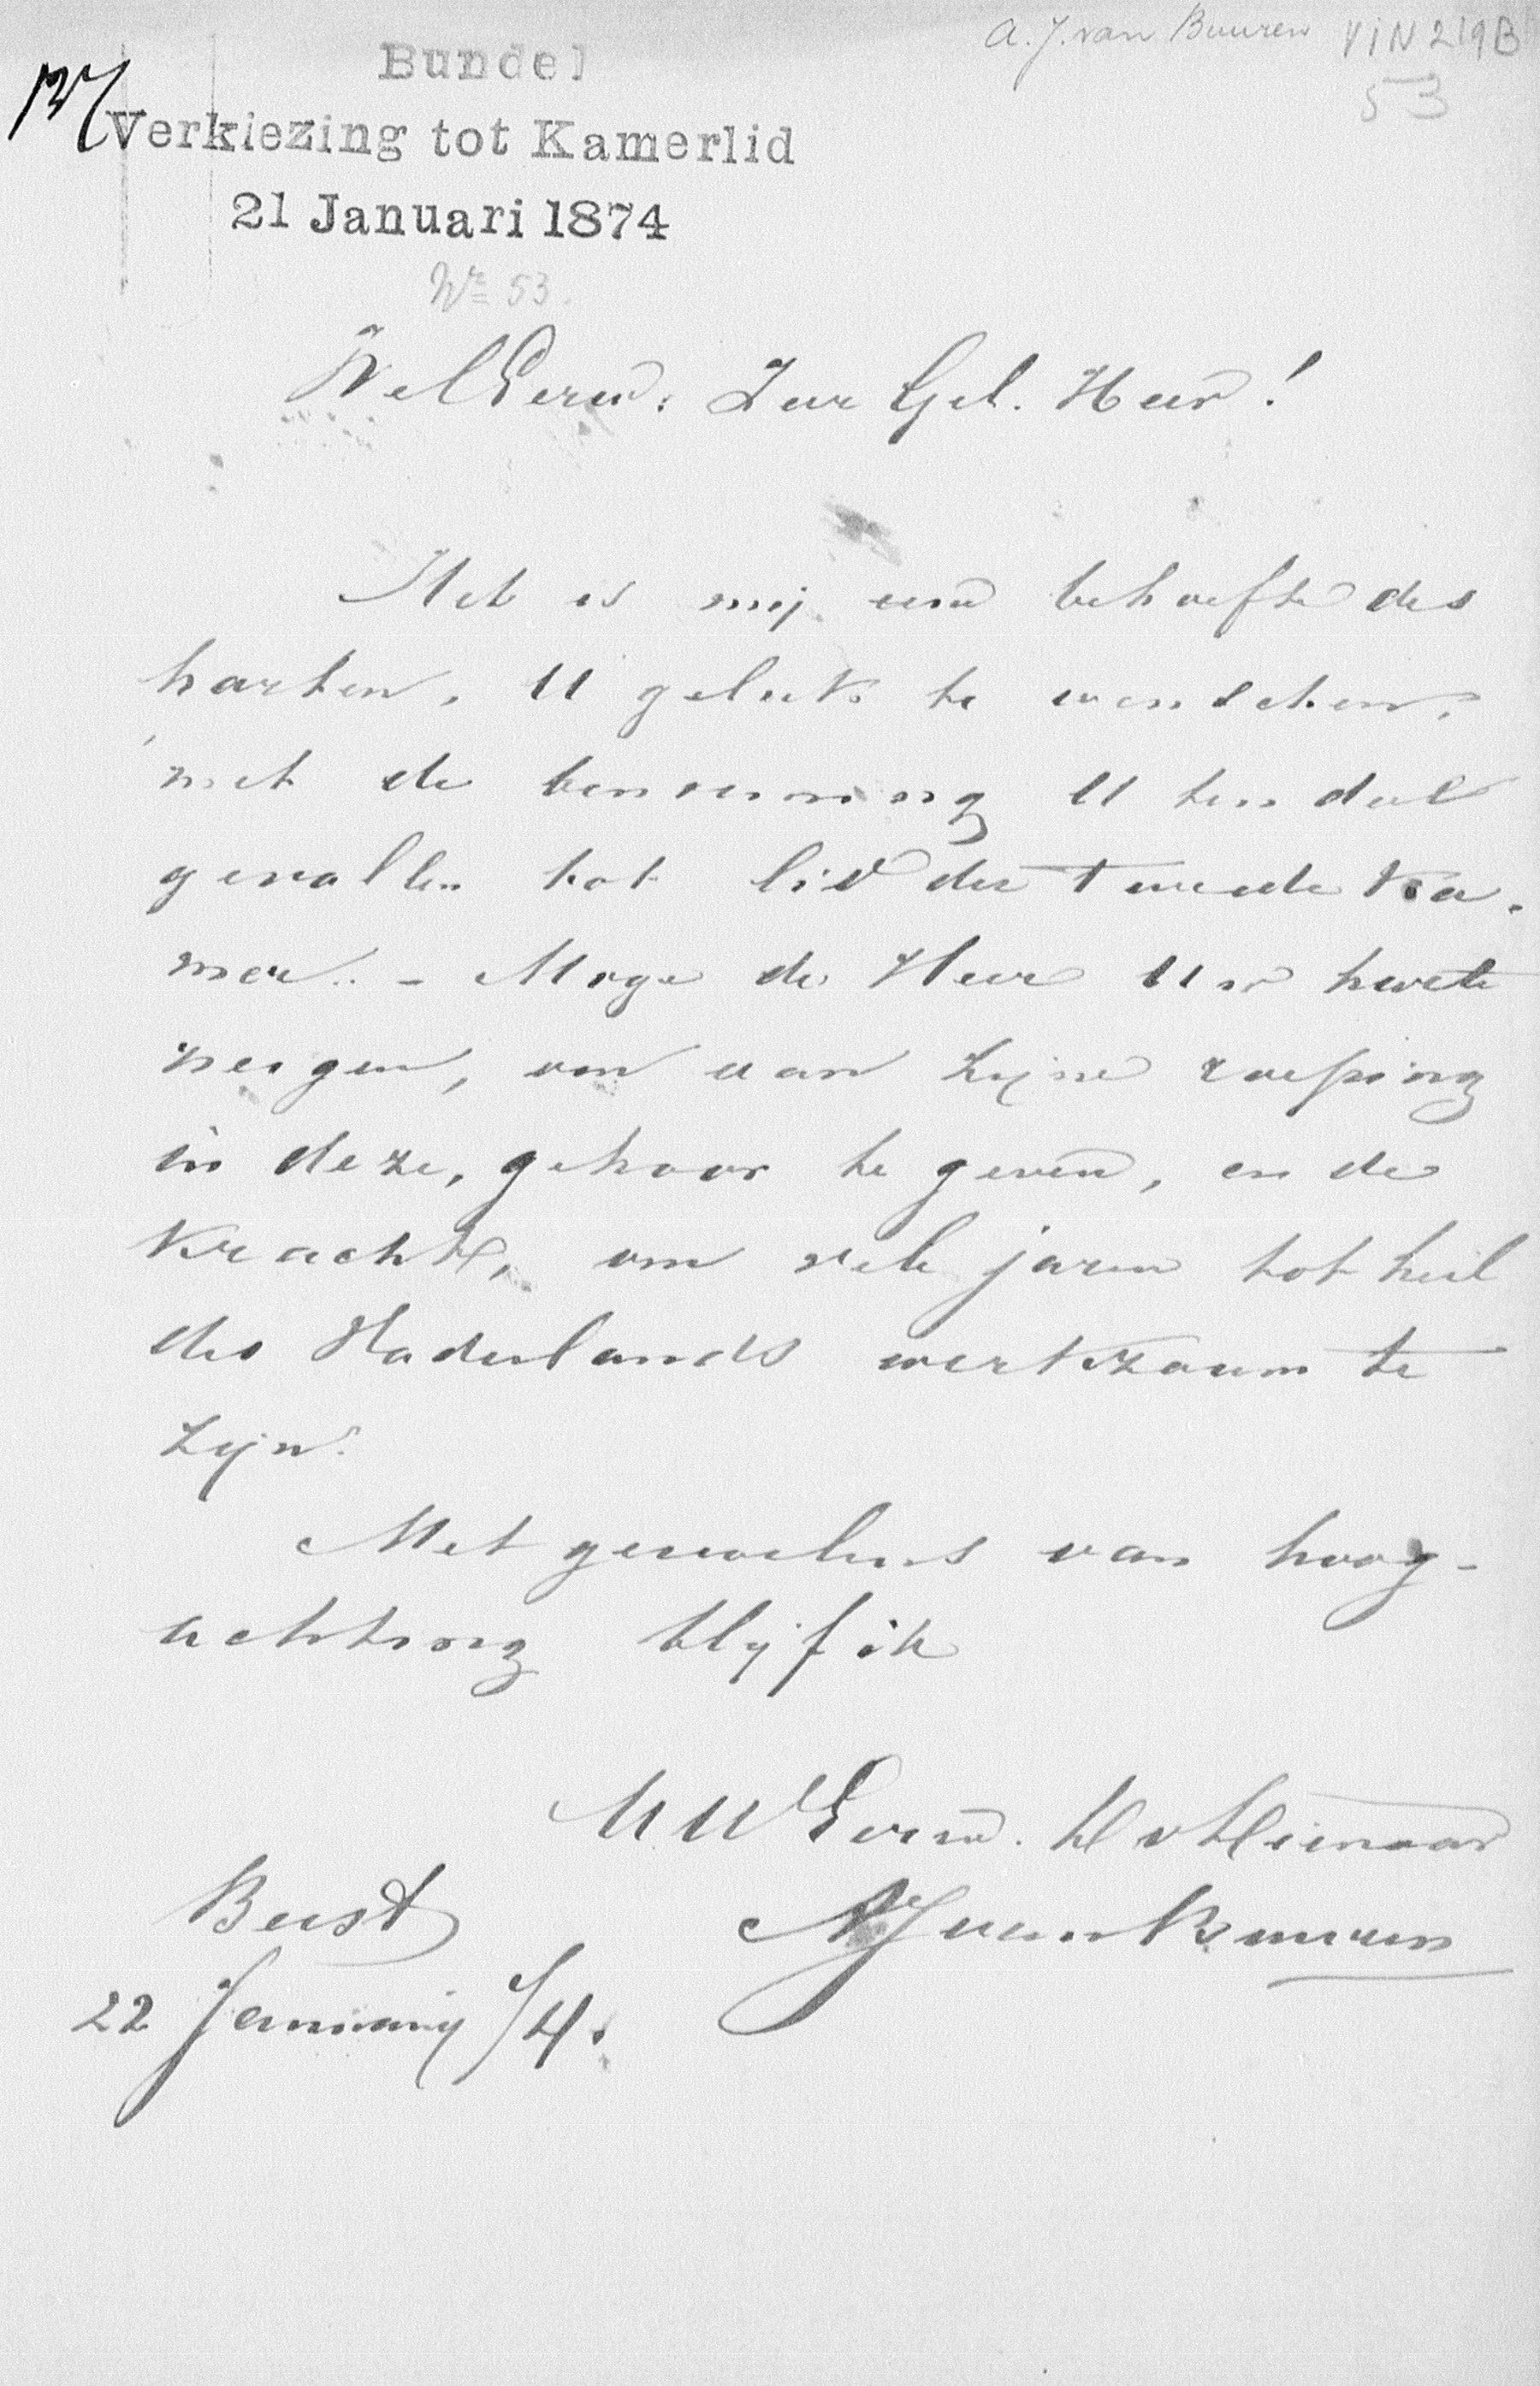 A. J. van Buuren VIN 219B
53
Bundel
137
Verkiezing tot Kamerlid
21 Januari 1874
Nr 53.
WelEerw: Zeer Gel. Heer!
Het is mij eene behoefte des
harten, U geluk te wenschen,
met de benoeming U ten deel
gevallen tot lid der Tweede Ka-
mer. - Moge de Heer Uw harte
neigen, om aan Zijne roeping
in deze, gehoor te geven, en de
kracht, om vele jaren tot heil
des Vaderlands werkzaam te
zijn.
Met gevoelens van hoog-
achting blijf ik
UWEerw. Dv Dienaar
AJ van Buuren
Beest
22 Januarij /74.